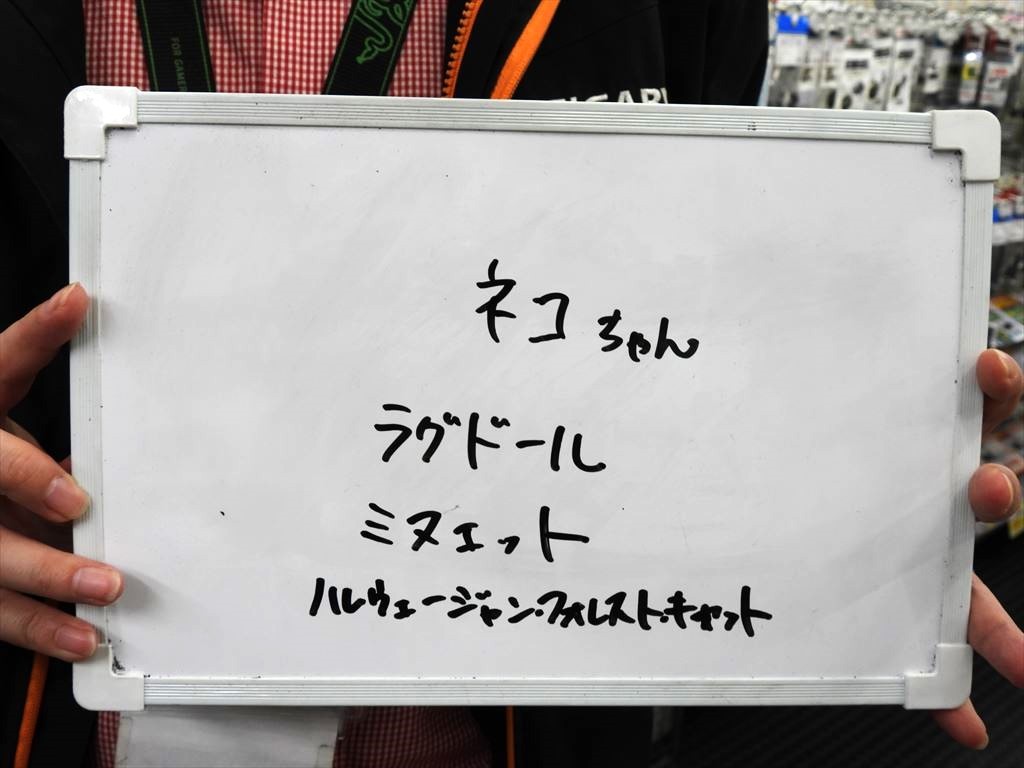 FOR GAMER
ネコちゃん
ラグドール
ミヌエット
ハルウェージャン・フォレスト・キャット